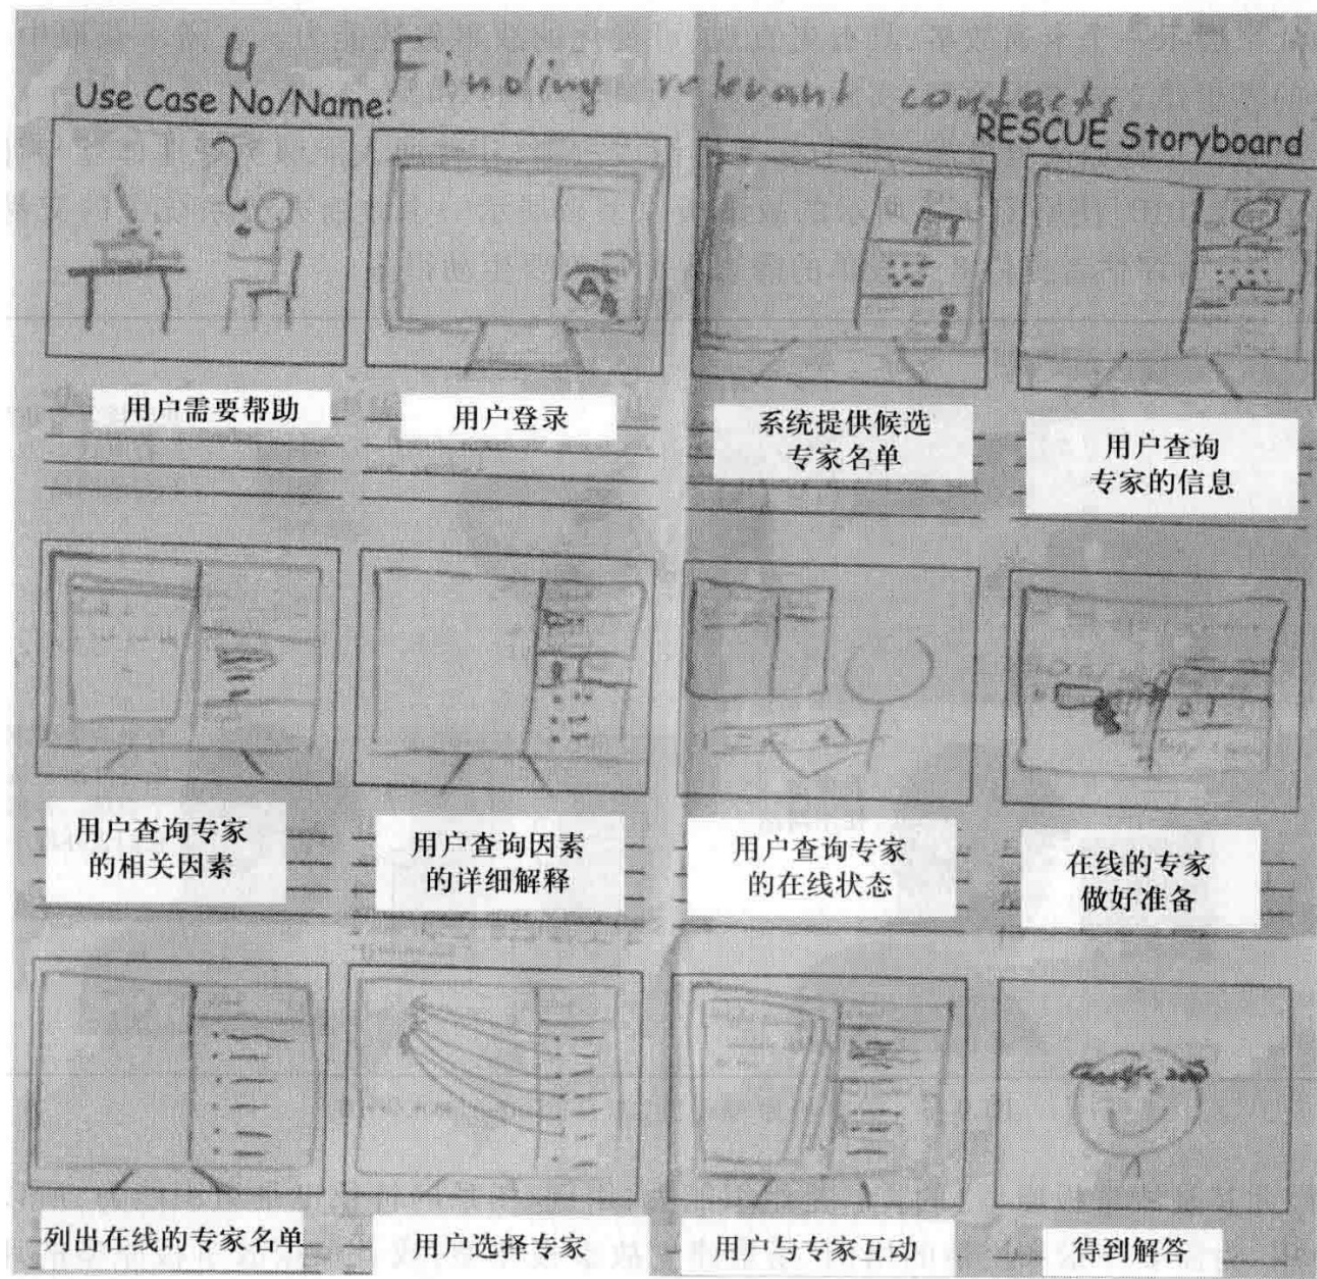 4 Finding relevant contacts
Use Case No/Name:
RESCUE Storyboard
用户需要帮助
用户登录
系统提供候选
专家名单
用户查询
专家的信息
用户查询专家
的相关因素
用户查询因素
的详细解释
用户查询专家
的在线状态
在线的专家
做好准备
列出在线的专家名单
用户选择专家
用户与专家互动
得到解答